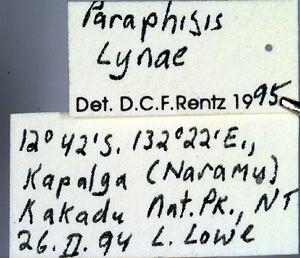 Paraphisis
Lynae
Det. D.C.F. Rentz 1995
12°42'S. 132°22'E.,
Kapalga (Naramu)
Kakadu Nat. Pk., NT
26.II.94 L. Lowe